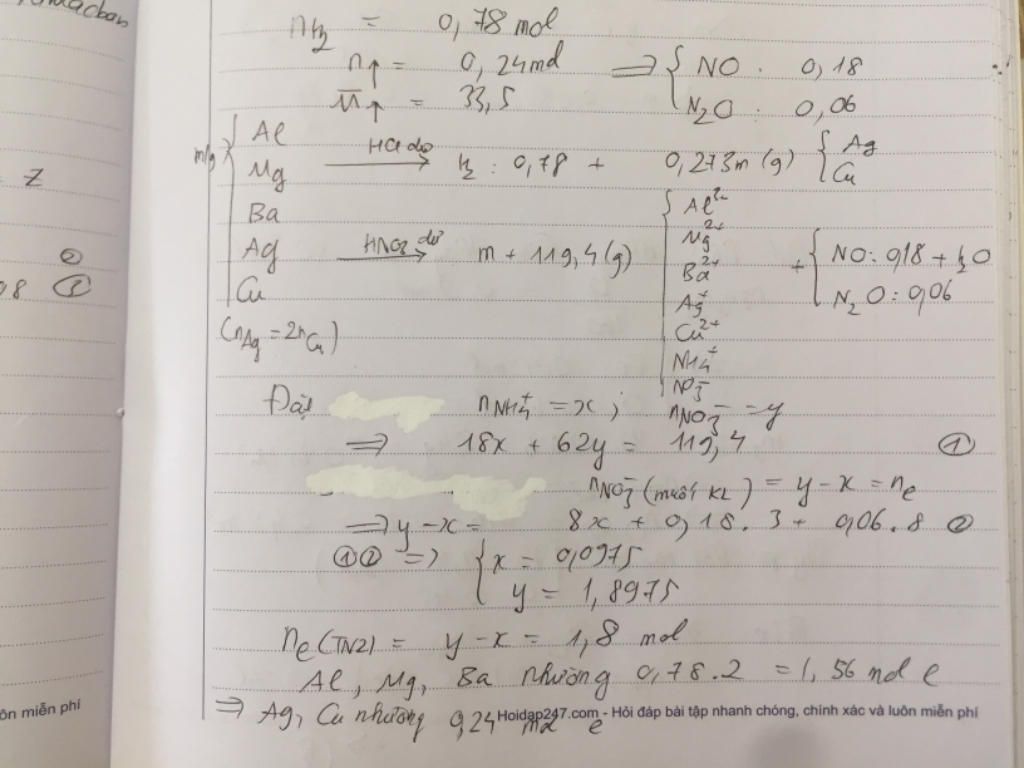 nH₂ = 0,78 mol
n↑ = 0,24 mol ⟹ { NO : 0,18
M̅↑ = 33,5 N₂O : 0,06
m(g) { Al
Mg HCl dư → H₂ : 0,78 + 0,273m (g) { Ag Cu
Ba
Ag HNO₃ dư → m + 119,4 (g) { Al³⁺ Mg²⁺ Ba²⁺ Ag⁺ Cu²⁺ NH₄⁺ NO₃⁻ + { NO : 0,18 + H₂O
Cu N₂O : 0,06
(nAg = 2nCu)
Z
②
0,8 ①
Đặt nNH₄⁺ = x ; nNO₃⁻ = y
⟹ 18x + 62y = 119,4 ①
nNO₃⁻ (muối KL) = y - x = ne
⟹ y - x = 8x + 0,18.3 + 0,06.8 ②
①② ⟹ { x = 0,0975
y = 1,8975
ne (TN2) = y - x = 1,8 mol
Al, Mg, Ba nhường 0,78.2 = 1,56 mol e
⟹ Ag, Cu nhường 0,24 mol e
Hoidap247.com - Hỏi đáp bài tập nhanh chóng, chính xác và luôn miễn phí
ôn miễn phí